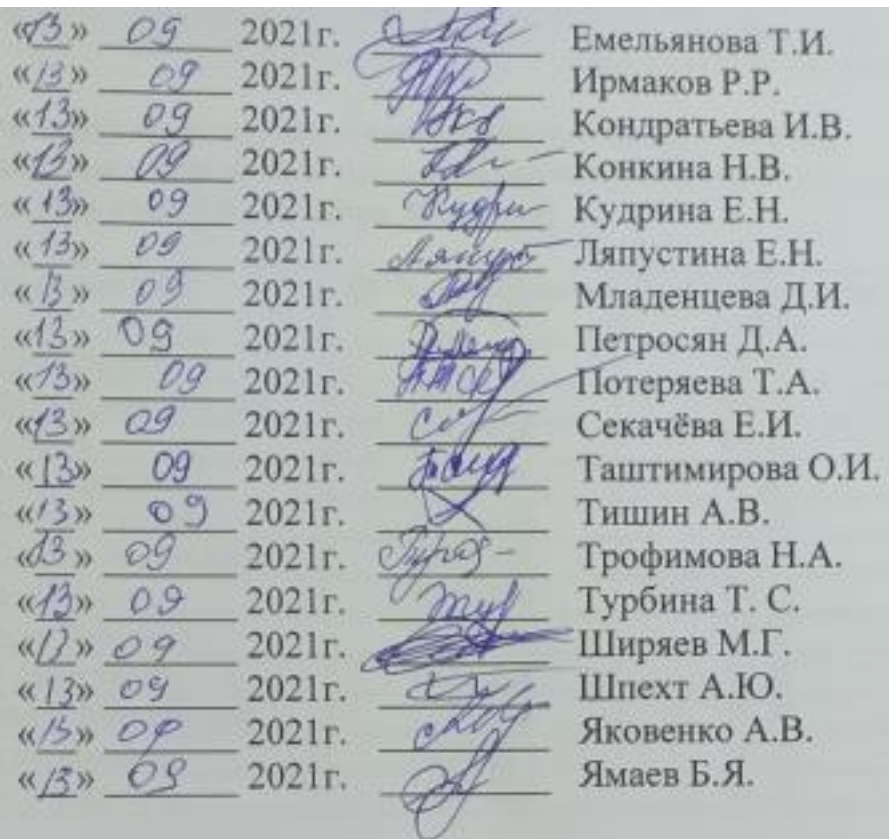 «13» 09 2021г. Емельянова Т.И.
«13» 09 2021г. Ирмаков Р.Р.
«13» 09 2021г. Кондратьева И.В.
«13» 09 2021г. Конкина Н.В.
«13» 09 2021г. Кудрина Е.Н.
«13» 09 2021г. Ляпустина Е.Н.
«13» 09 2021г. Младенцева Д.И.
«13» 09 2021г. Петросян Д.А.
«13» 09 2021г. Потеряева Т.А.
«13» 09 2021г. Секачёва Е.И.
«13» 09 2021г. Таштимирова О.И.
«13» 09 2021г. Тишин А.В.
«13» 09 2021г. Трофимова Н.А.
«13» 09 2021г. Турбина Т. С.
«13» 09 2021г. Ширяев М.Г.
«13» 09 2021г. Шпехт А.Ю.
«13» 09 2021г. Яковенко А.В.
«13» 09 2021г. Ямаев Б.Я.